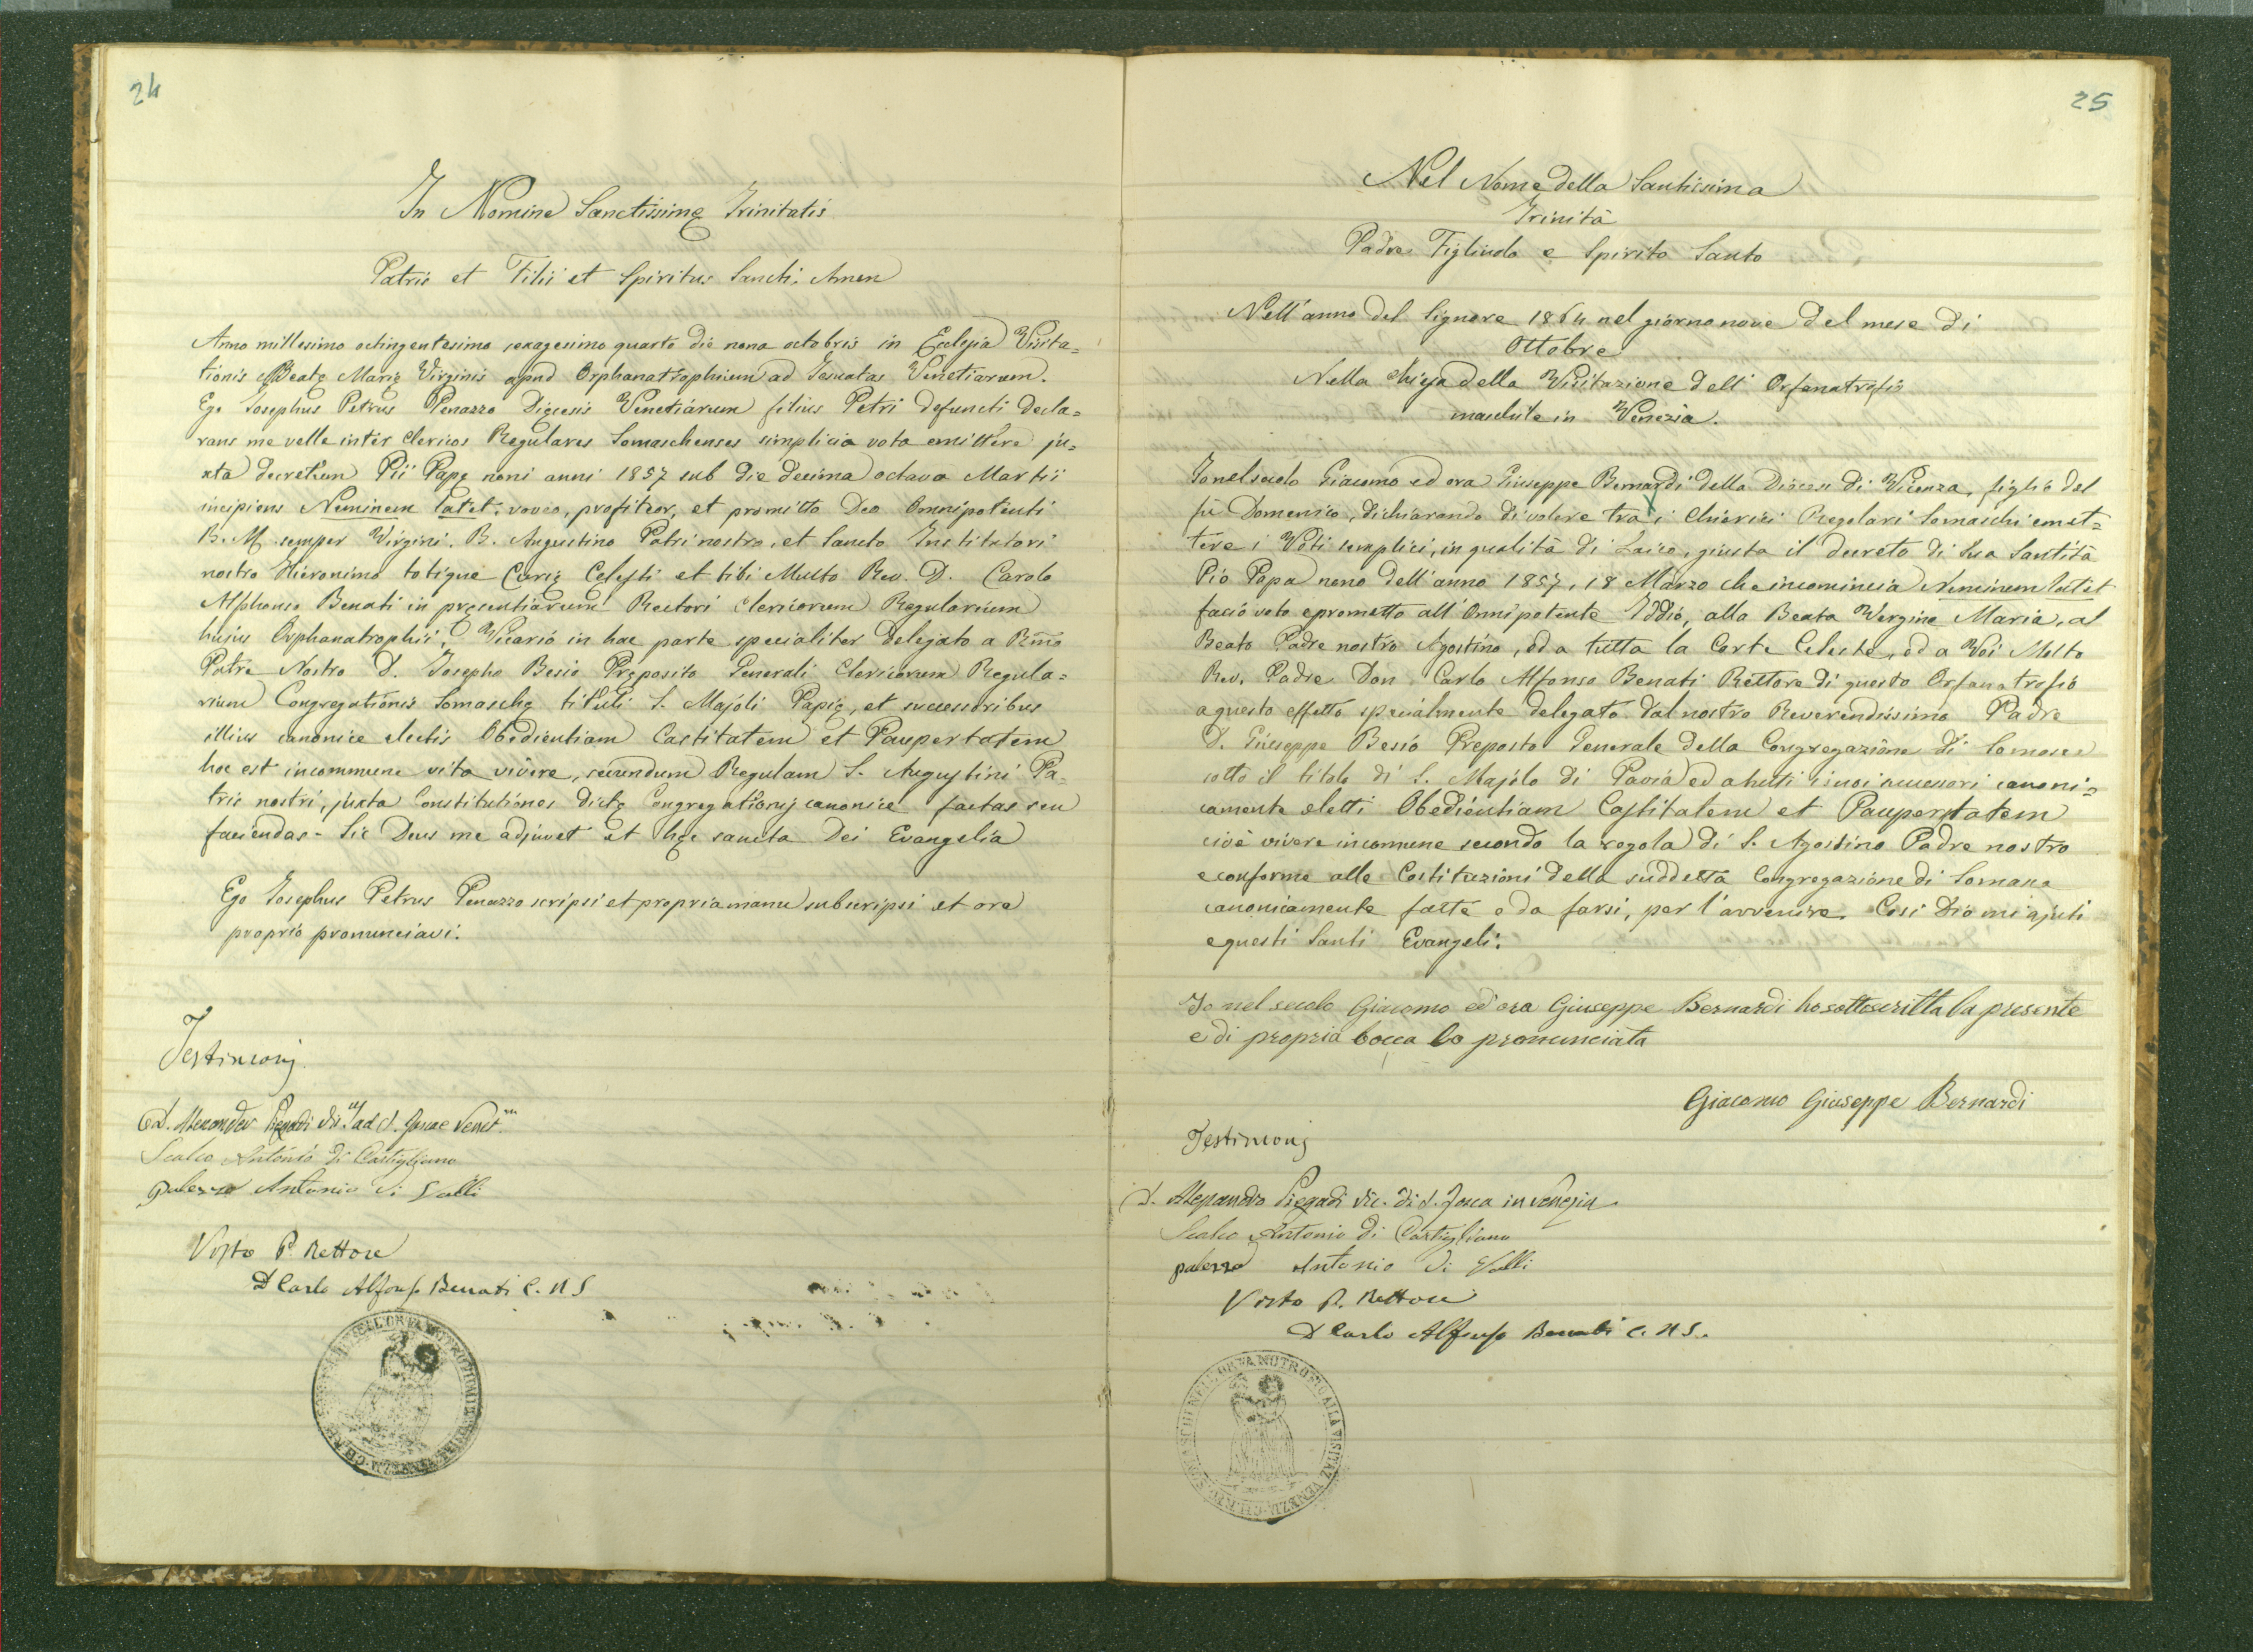 24
In Nomine Sanctissimę Trinitatis
Patris et Filii et Spiritus Sancti. Amen
Anno millesimo octingentesimo sexagesimo quarto die nona octobris in Eclesia Visita=
tionis Beatę Marię Virginis apud Orphanatrophium ad Jesuatas Venetiarum.
Ego Josephus Petrus Penazzo Dięcesis Venetiarum filius Petri defuncti decla=
rans me velle inter Clericos Regulares Somaschenses simplicia vota emittere ju=
xta decretum Pii Papę noni anni 1857 sub die decima octava Martii
incipiens Neminem latet; voveo, profiteor, et promitto Deo Omnipotenti
B. M. semper Virgini. B. Augustino Patri nostro, et Sancto Institutori
nostro Hieronimo totique Curię Celesti et tibi Multo Rev. D. Carolo
Alphonso Benati in pręsentiarum Rectori Clericorum Regularium
hujus Orphanatrophii, Vicario in hac parte specialiter delegato a Rm̃o
Patre Nostro D. Josepho Besio Pręposito Generali Clericorum Regula=
rium Congregationis Somaschę tituli S. Majoli Papię, et successoribus
illius canonice electis Obedientiam Castitatem et Paupertatem
hoc est incommune vita vivere, secundum Regulam S. Augustini Pa=
tris nostri, juxta Constitutiones dictę Congregationis canonice factas seu
faciendas. Sic Deus me adjuvet et hęc sancta Dei Evangelia
Ego Josephus Petrus Penazzo scripsi et propria manu subscripsi et ore
proprio pronunciavi.
Testimonj
D. Alexander Piegadi Vic. ad S. Lucae Venet.
Scalco Antonio di Castigliono
palezza Antonio di Valli
Visto P. Rettore
D Carlo Alfonso Benati C. R S
25
Nel Nome della Santissima
Trinità
Padre Figliuolo e Spirito Santo
Nell'anno del Signore 1864 nel giorno nove del mese di
Ottobre
Nella Chiesa della Visitazione dell' Orfanatrofio
maschile in Venezia.
Io nel secolo Giacomo ed ora Giuseppe Bernardi della Diocesi di Vicenza, figlio del
fù Domenico, dichiarando di volere tra i Chierici Regolari Somaschi emet=
tere i Voti semplici, in qualità di Laico, giusta il decreto di Sua Santità
Pio Papa nono dell'anno 1857, 18 Marzo che incomincia Neminem latet
facio voto e prometto all'Onnipotente Iddio, alla Beata Vergine Maria, al
Beato Padre nostro Agostino, ed a tutta la Corte Celeste, ed a Voi Molto
Rev. Padre Don Carlo Alfonso Benati Rettore di questo Orfanatrofio
a questo effetto specialmente delegato dal nostro Reverendissimo Padre
D. Giuseppe Besio Preposto Generale della Congregazione di Somasca
sotto il titolo di S. Majolo di Pavia ed a tutti i suoi successori canoni=
camente eletti Obedientiam Castitatem et Paupertatem
cioè vivere incomune secondo la regola di S. Agostino Padre nostro
e conforme alle Costituzioni della suddetta Congregazione di Somasca
canonicamente fatte o da farsi, per l'avvenire. Cosi Dio mi ajuti
e questi Santi Evangeli.
Io nel secolo Giacomo ed ora Giuseppe Bernardi ho sottoscritta la presente
e di propria bocca lo pronunciata
Giacomo Giuseppe Bernardi
Testimonj
D. Alessandro Piegadi Vic. di S. Luca in Venezia
Scalco Antonio di Castigliono
palezza Antonio di Valli
Visto P. Rettore
D Carlo Alfonso Benati C. R S.
SOMASCHI NELL'ORFANOTROFIO ALLA VISITAZ VENEZIA